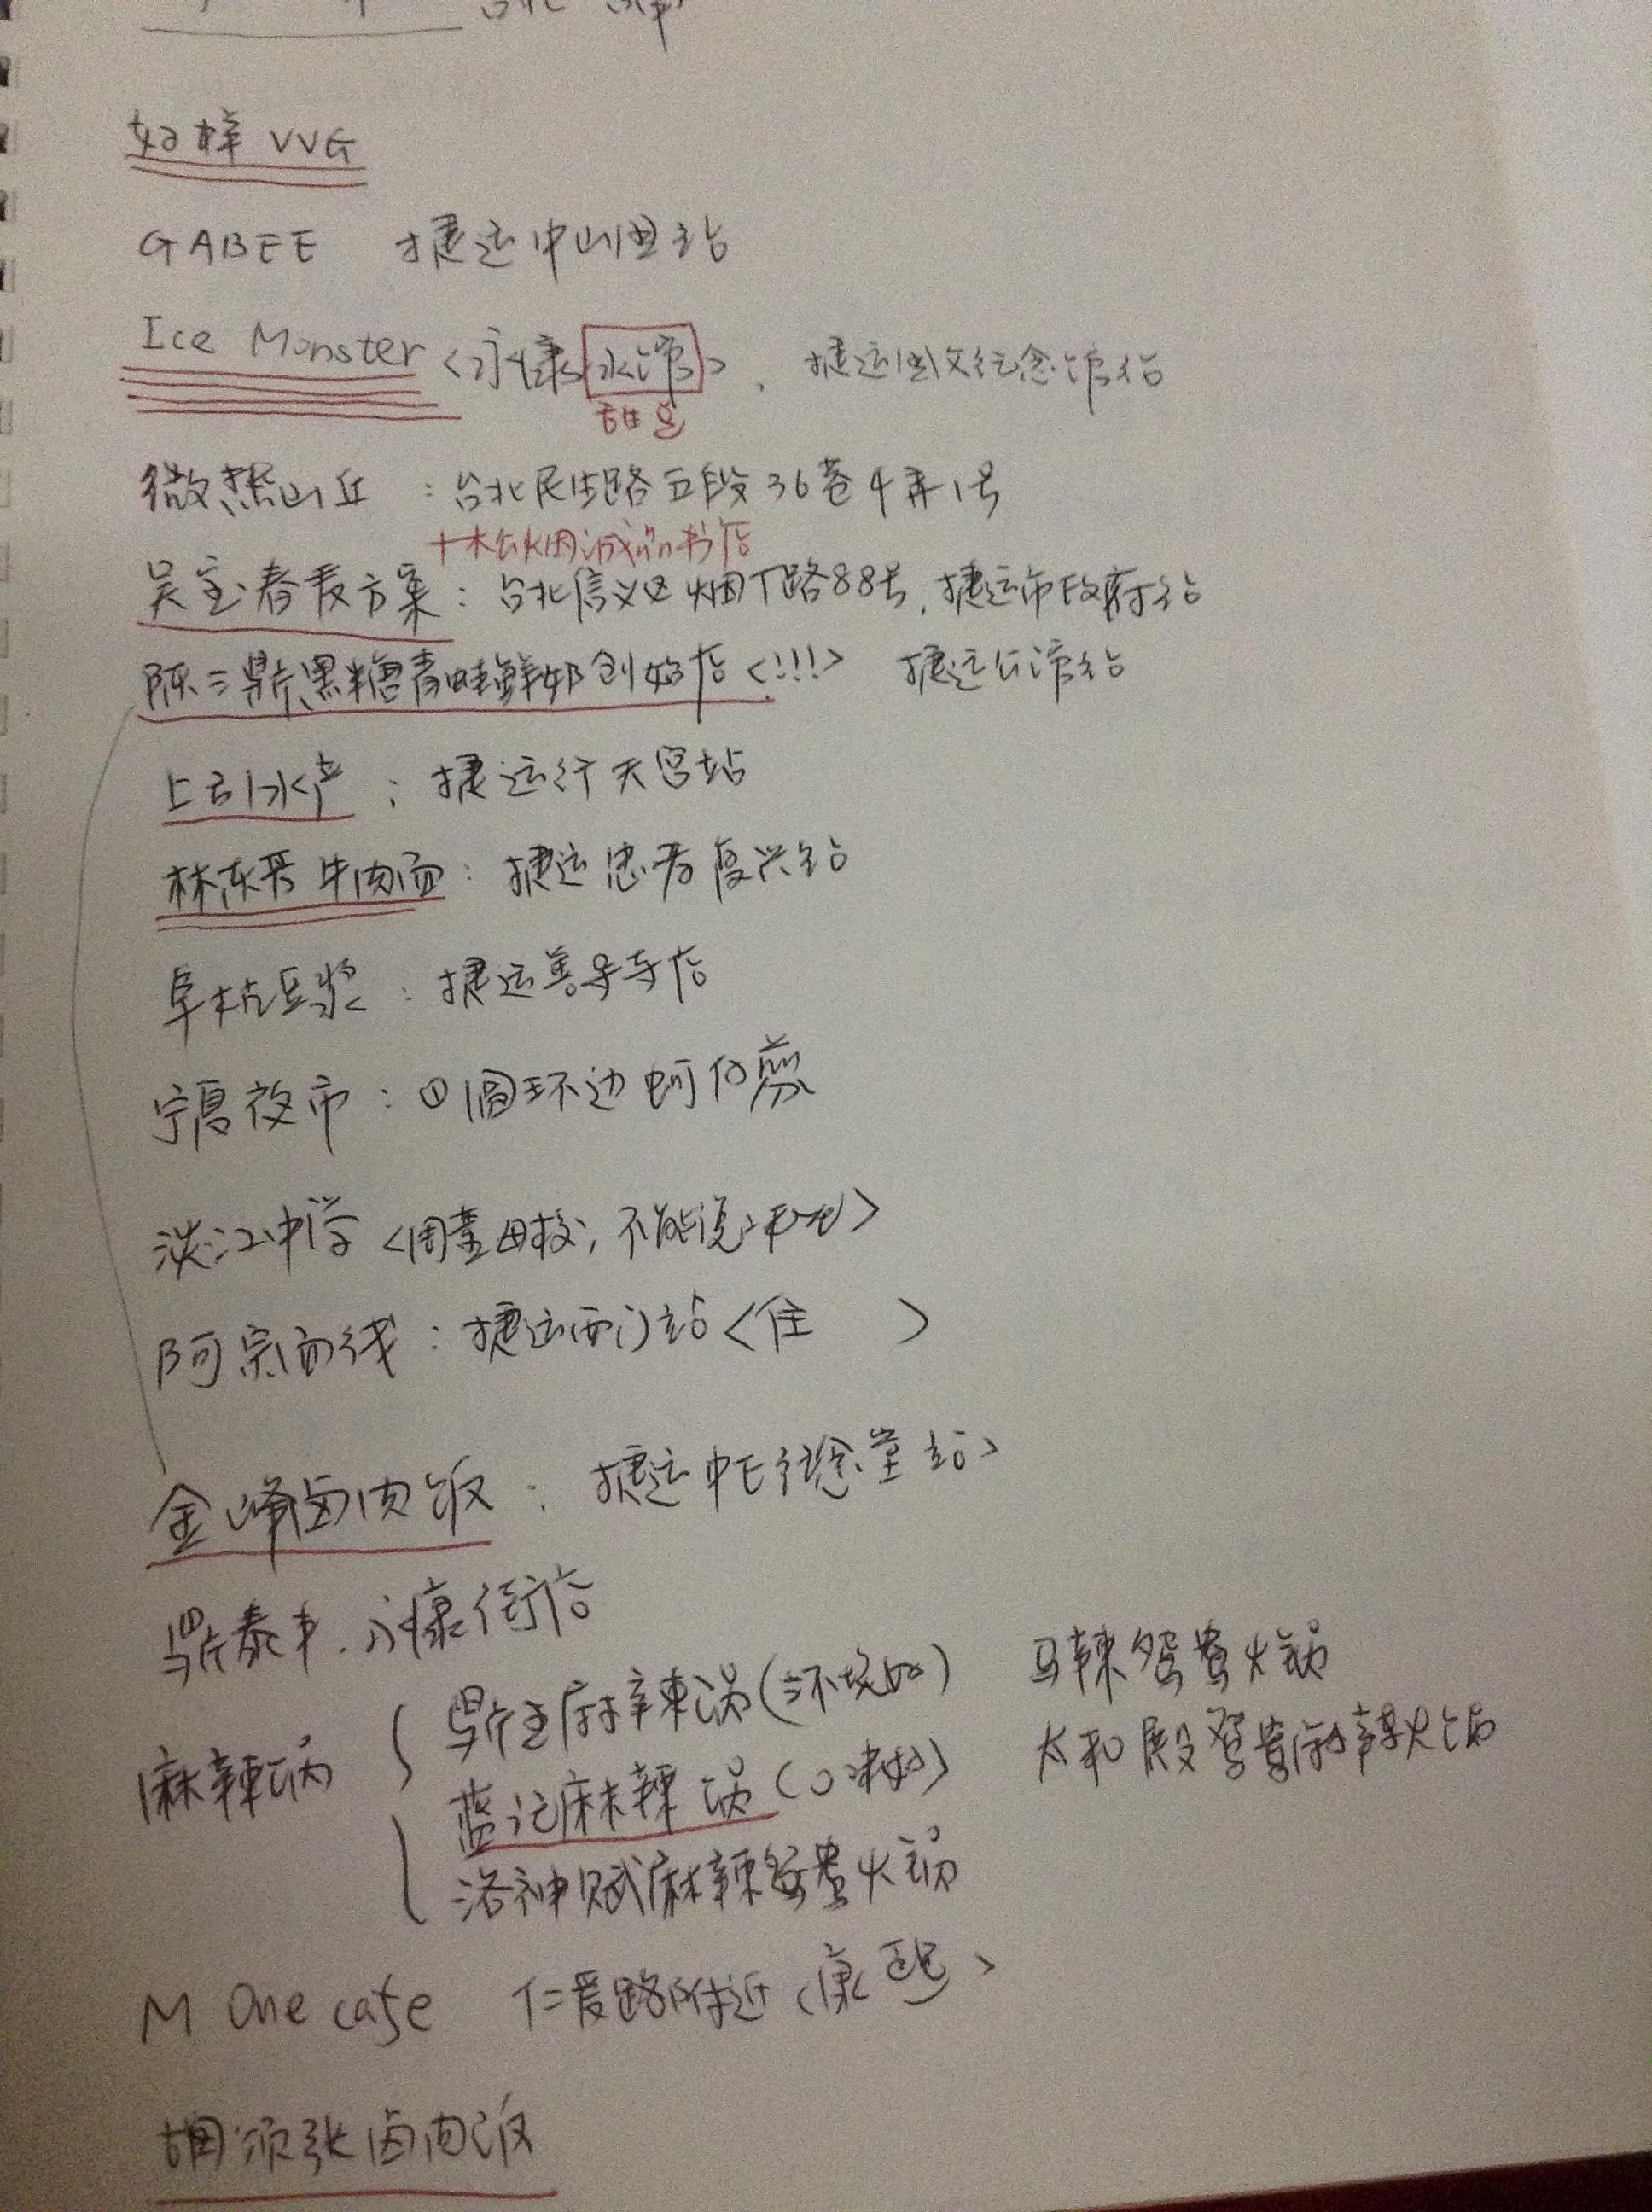 好样 VVG
GABEE 捷运中山国站
Ice Monster <永康冰馆>, 捷运国父纪念馆站
甜品
微热山丘 : 台北民生路五段36巷4弄1号
+松烟诚品书店
吴宝春麦方案 : 台北信义区烟厂路88号, 捷运市政府站
陈三鼎黑糖青蛙鲜奶创始店<!!!> 捷运公馆站
上引水产 : 捷运行天宫站
林东芳牛肉面 : 捷运忠孝复兴站
阜杭豆浆 : 捷运善导寺店
宁夏夜市 : ①圆环边蚵仔煎
淡江中学<周董母校, 不能说>
阿宗面线 : 捷运西门站<住 >
金峰卤肉饭 : 捷运中正纪念堂站>
鼎泰丰. 永康街店
麻辣锅 { 鼎王麻辣锅(环境好) 马辣鸳鸯火锅
蓝记麻辣锅(口味好) 太和殿鸳鸯麻辣火锅
洛神赋麻辣鸳鸯火锅
M One cafe 仁爱路附近<康熙>
胡须张卤肉饭